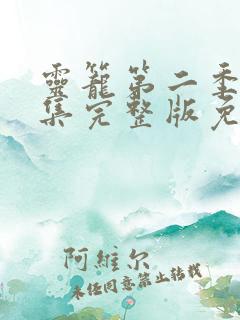 靈籠第二季
集完整版免
阿維尔
未经同意禁止转载